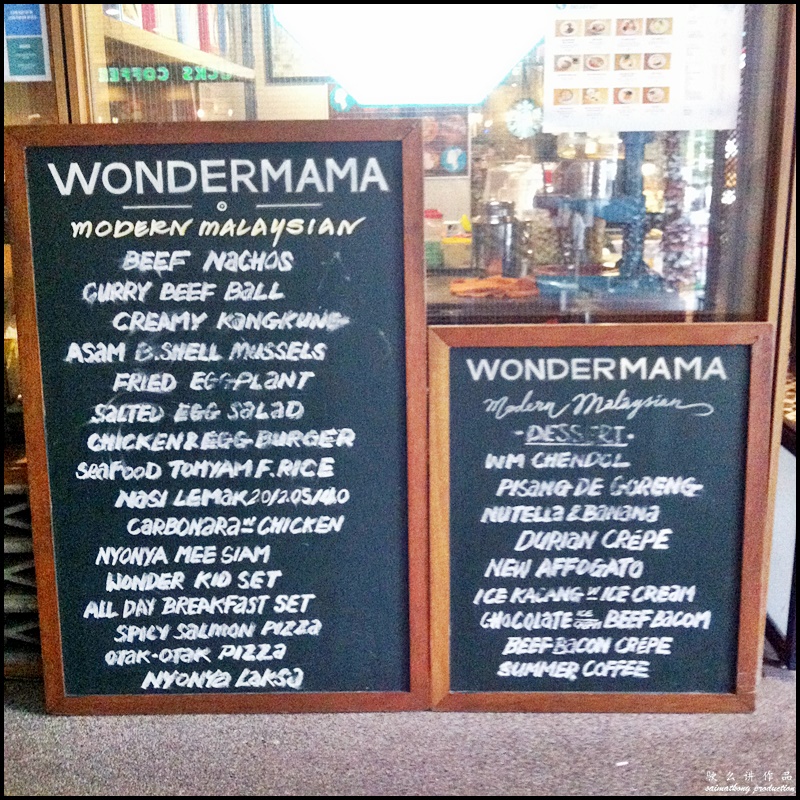 WONDERMAMA
MODERN MALAYSIAN
BEEF NACHOS
CURRY BEEF BALL
CREAMY KANGKUNG
ASAM B.SHELL MUSSELS
FRIED EGGPLANT
SALTED EGG SALAD
CHICKEN & EGG BURGER
SEAFOOD TOMYAM F.RICE
NASI LEMAK
CARBONARA W CHICKEN
NYONYA MEE SIAM
WONDER KID SET
ALL DAY BREAKFAST SET
SPICY SALMON PIZZA
OTAK-OTAK PIZZA
NYONYA LAKSA
WONDERMAMA
Modern Malaysian
-DESSERT-
WM CHENDOL
PISANG DE GORENG
NUTELLA & BANANA
DURIAN CRÉPE
NEW AFFOGATO
ICE KACANG W ICE CREAM
CHOCOLATE ICE CREAM BEEF BACOM
BEEF BACON CRÉPE
SUMMER COFFEE
saimatkong production